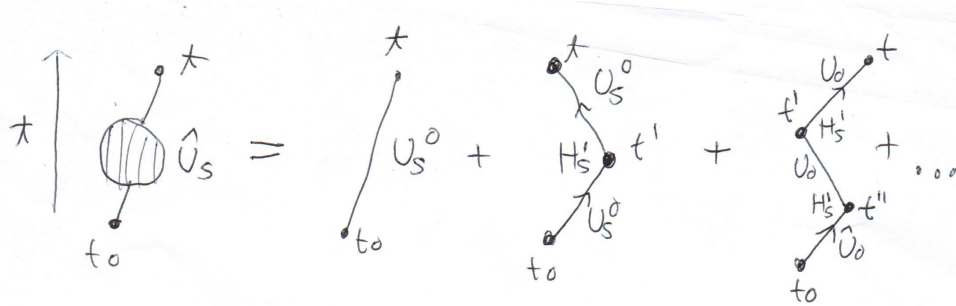 t
t
Û_S
t_0
=
t
U_S^0
t_0
+
t
U_S^0
H_S' t'
U_S^0
t_0
+
t
U_0
t' H_S'
U_0
H_S' t''
Û_0
t_0
+ ...